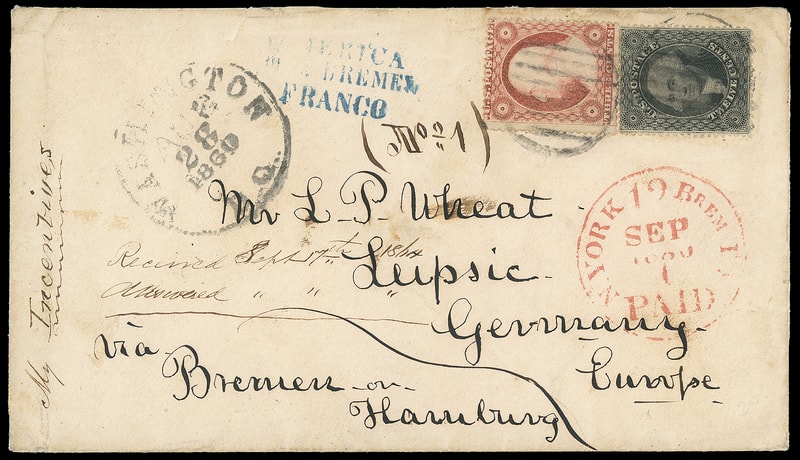 AMERICA
BREMEN
FRANCO
U.S. POSTAGE
THREE CENTS
U.S. POSTAGE
TWELVE CENTS
WASHINGTON
28
1860
(No. 1)
YORK 19 BREM
SEP
1
PAID
Mr L. P. Wheat
Received Sept 17th
Answered " " "
Leipsic
Germany
Europe
via
Bremen or
Hamburg
My Incentives